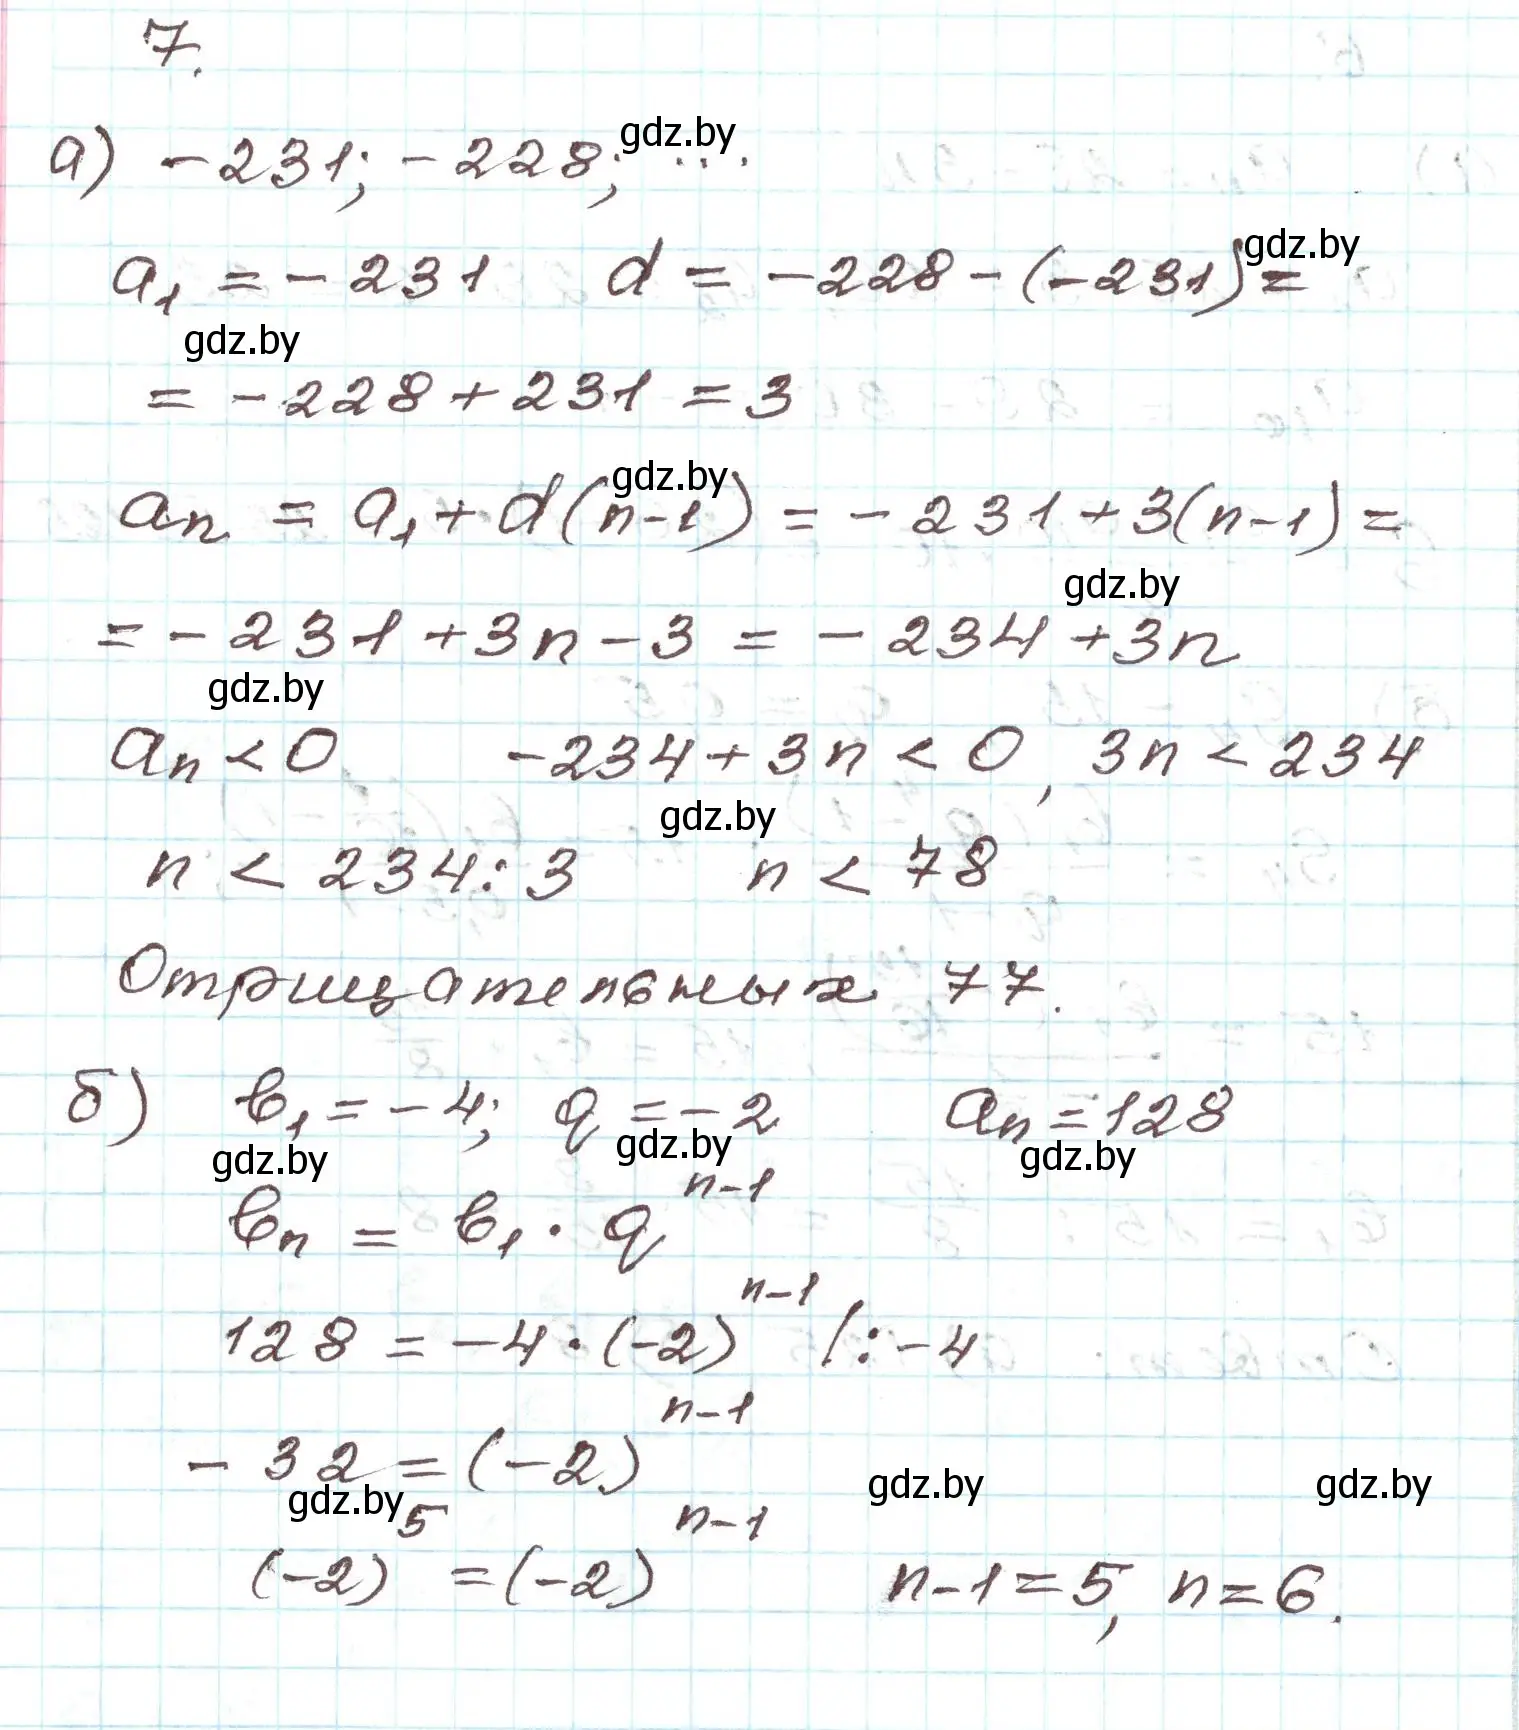 7.
а) -231; -228; ...
a₁ = -231 d = -228 - (-231) =
= -228 + 231 = 3
aₙ = a₁ + d(n-1) = -231 + 3(n-1) =
= -231 + 3n - 3 = -234 + 3n
aₙ < 0 -234 + 3n < 0, 3n < 234
n < 234 : 3 n < 78
Отрицательных 77.
б) b₁ = -4; q = -2 aₙ = 128
bₙ = b₁ · qⁿ⁻¹
128 = -4 · (-2)ⁿ⁻¹ /: -4
-32 = (-2)ⁿ⁻¹
(-2)⁵ = (-2)ⁿ⁻¹ n-1 = 5, n = 6.
gdz.by
gdz.by
gdz.by
gdz.by
gdz.by
gdz.by
gdz.by
gdz.by
gdz.by
gdz.by
gdz.by
gdz.by
gdz.by